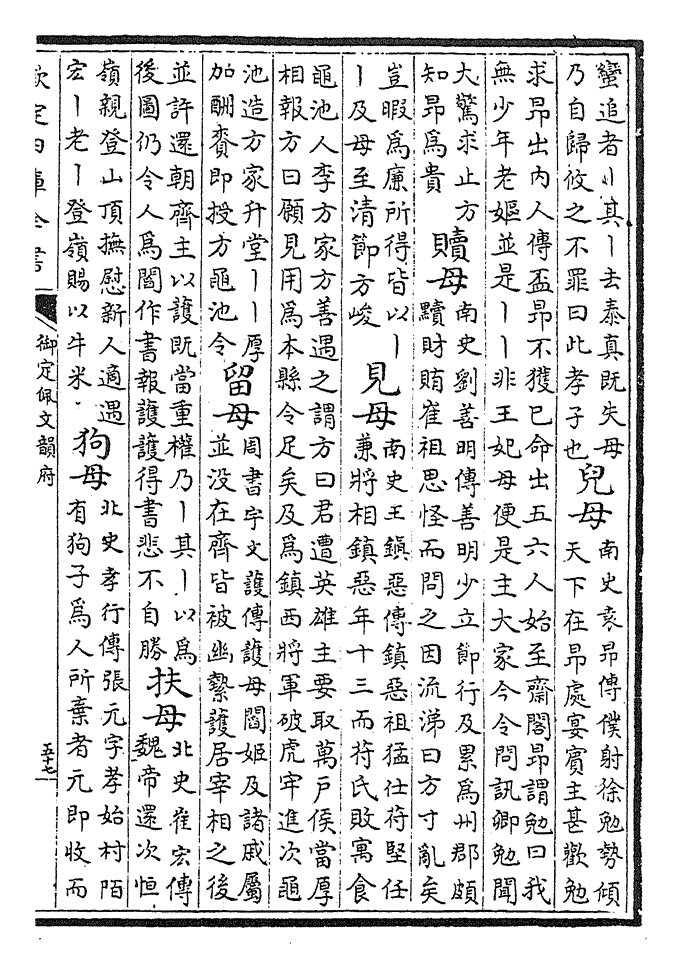 蠻追者以其丨去泰真既失母
乃自歸攸之不罪曰此孝子也
兒母
南史袁昻傳僕射徐勉勢傾
天下在昻處宴賓主甚歡勉
求昻出內人傳盃昻不獲已命出五六人始至齋閣昻謂勉曰我
無少年老嫗並是丨丨非王妃母便是主大家今令問訊卿勉聞
大驚求止方
知昻為貴
贖母
南史劉善明傳善明少立節行及累為州郡頗
黷財賄崔祖思怪而問之因流涕曰方寸亂矣
豈暇為廉所得皆以丨
丨及母至清節方峻
見母
南史王鎮惡傳鎮惡祖猛仕苻堅任
兼將相鎮惡年十三而苻氏敗寓食
黽池人李方家方善遇之謂方曰君遭英雄主要取萬戸侯當厚
相報方曰願見用為本縣令足矣及為鎮西將軍破虎牢進次黽
池造方家升堂丨丨厚
加酬賚即授方黽池令
留母
周書宇文護傳護母閻姬及諸戚屬
並没在齊皆被幽縶護居宰相之後
並許還朝齊主以護既當重權乃丨其丨以為
後圖仍令人為閻作書報護護得書悲不自勝
扶母
北史崔宏傳
魏帝還次恒
嶺親登山頂撫慰新人適遇
宏丨老丨登嶺賜以牛米
狗母
北史孝行傳張元字孝始村陌
有狗子為人所棄者元即收而
欽定四庫全書
御定佩文韻府
五十七